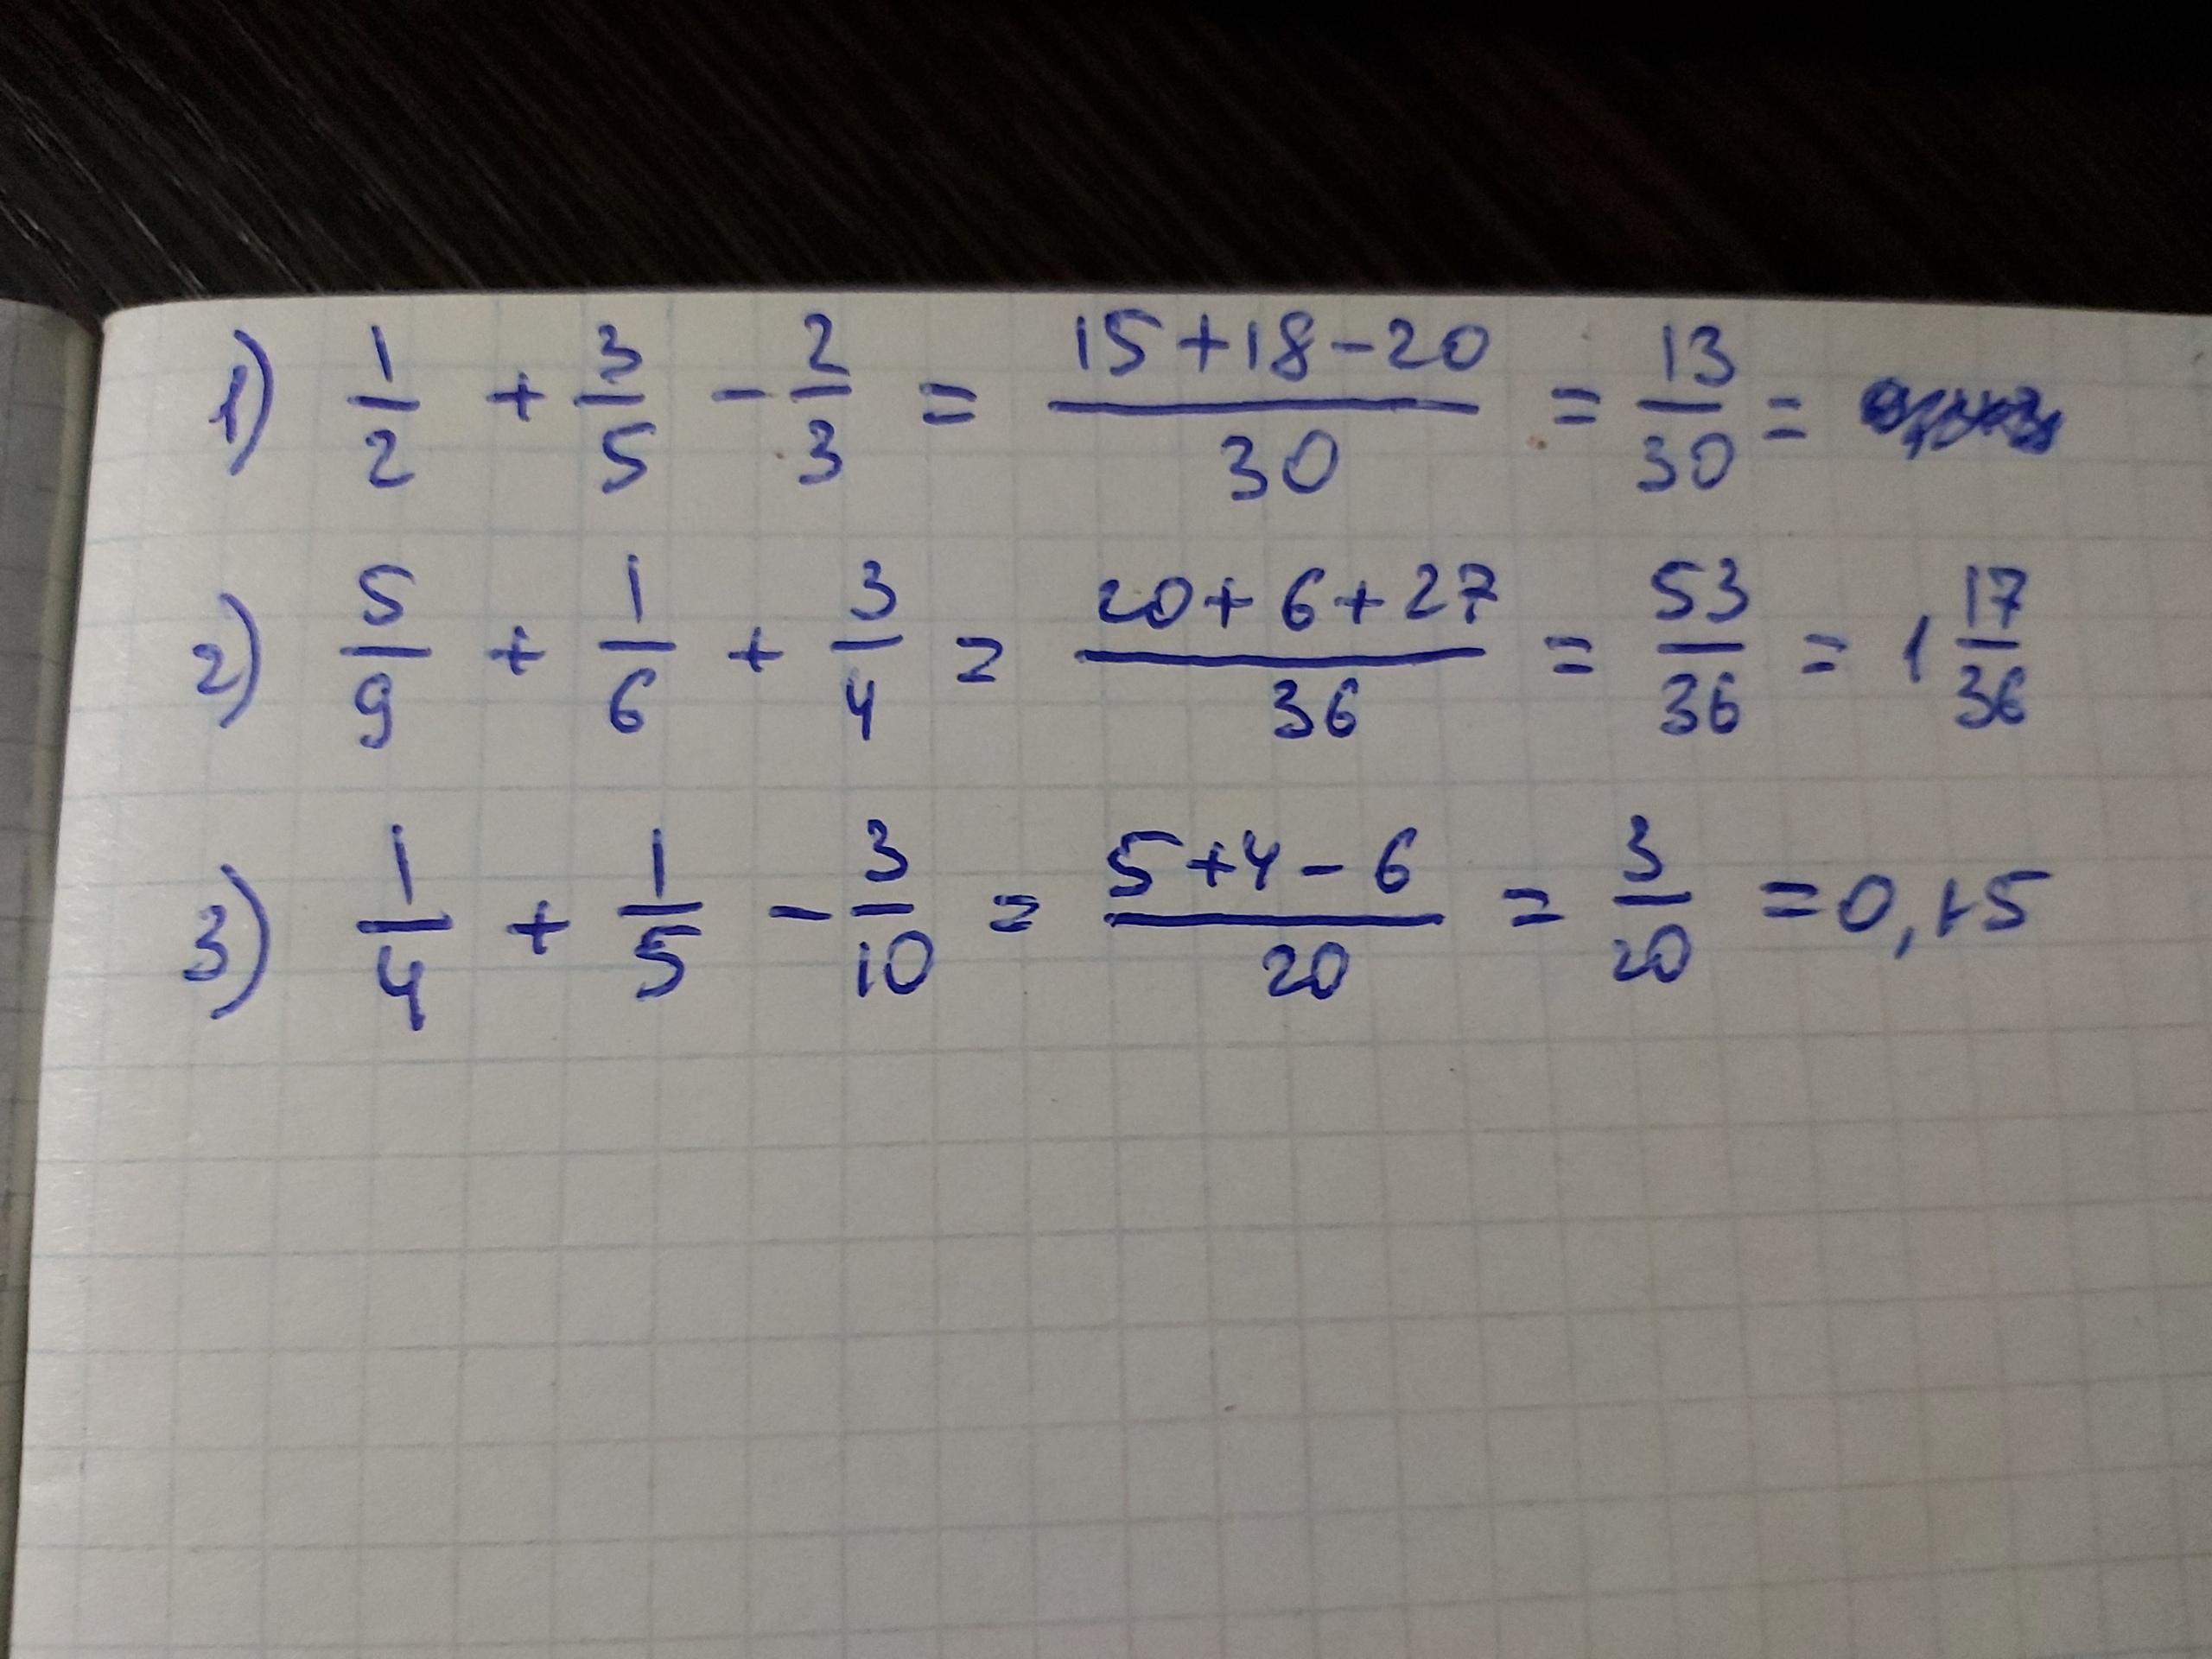 1) 1/2 + 3/5 - 2/3 = (15+18-20)/30 = 13/30 =
2) 5/9 + 1/6 + 3/4 = (20+6+27)/36 = 53/36 = 1 17/36
3) 1/4 + 1/5 - 3/10 = (5+4-6)/20 = 3/20 = 0,15